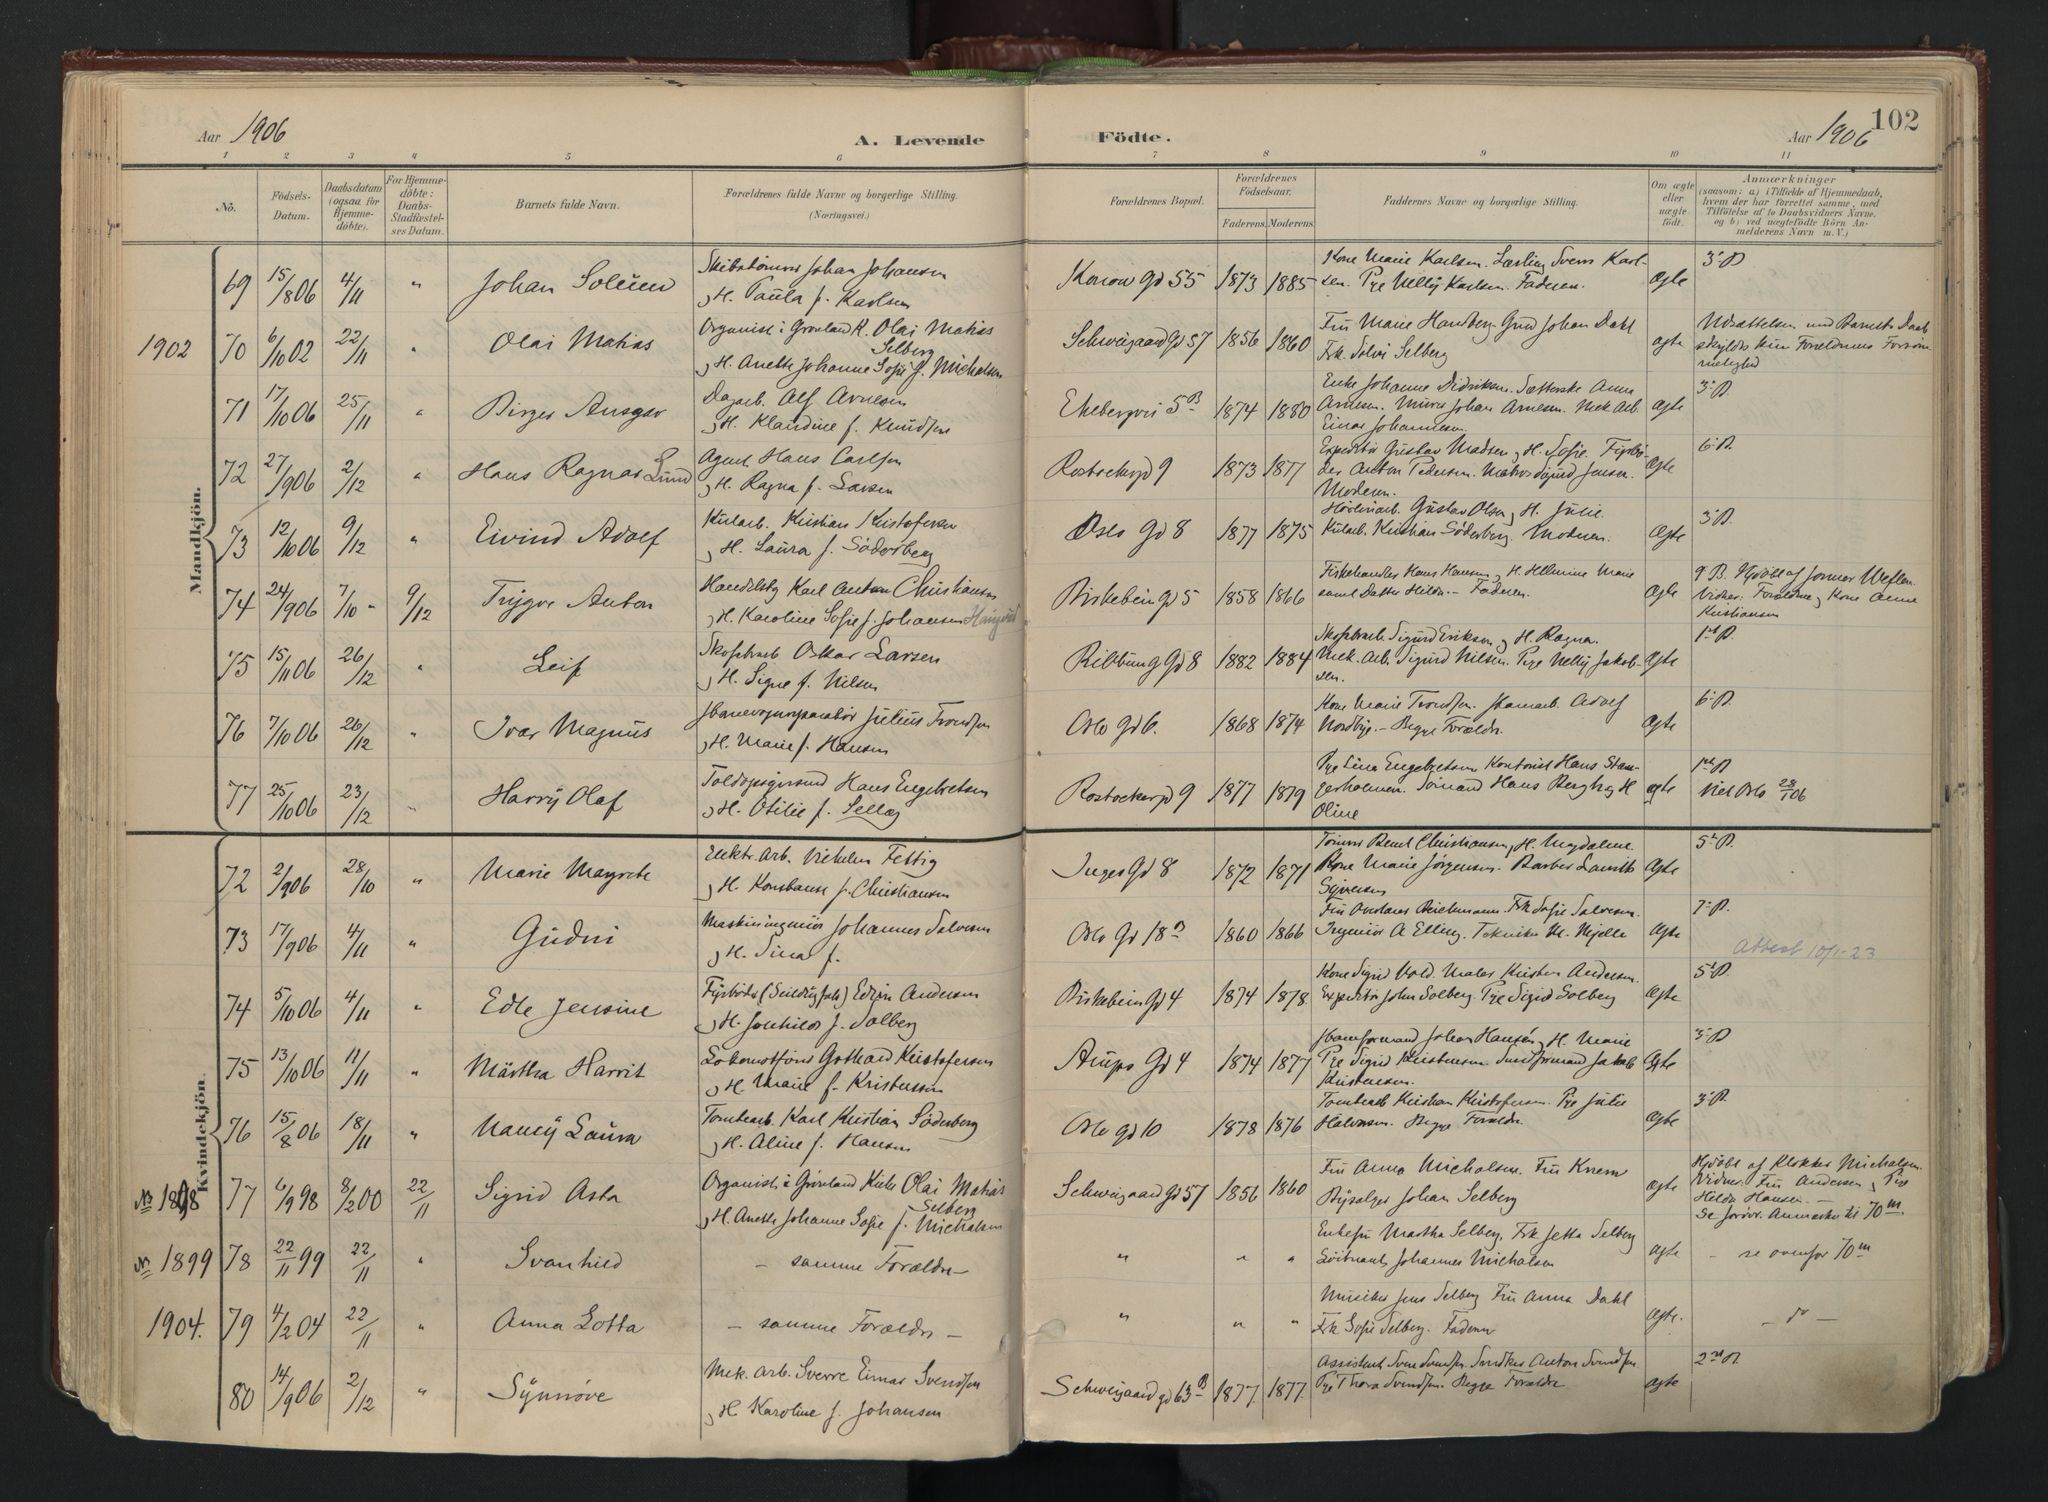 Aar 1906
A. Levende
Födte.
Aar 1906
102
1 2 3 4 5 6 7 8 9 10 11
Nō.
Födsels-
Datum.
Daabsdatum
(ogsaa for
Hjemme-
döbte).
For Hjemme-
döbte:
Daabs-
Stadfæstel-
ses Datum.
Barnets fulde Navn.
Forældrenes fulde Navne og borgerlige Stilling.
(Næringsvei.)
Forældrenes Bopæl.
Forældrenes
Födselsaar.
Faderens. Moderens.
Faddernes Navne og borgerlige Stilling.
Om ægte
eller
uægte
födt.
Anmærkninger
(saasom: a) i Tilfælde af Hjemmedaab,
hvem der har forrettet samme, med
Tilföielse af to Daabsvidners Navne,
og b) ved uægtefödte Börn An-
melderens Navn m. V.)
Mandkjön.
69 15/8 06 4/11 " Johan
Johan Johansen
H. Paula f. Karlsen
Gd 55 1873 1885
Kone Marie Karlsen. Lærling Karl-
sen. Pge Nelly Karlsen. Faderen.
ægte
3 B.
1902
70 6/10 02 22/11 " Olai Matias
Organist i Grønland K. Olai Matias
Selberg
H. Anette Johanne Sofie f. Michalsen
Schweigaard Gd 57 1856 1860
Fru Marie Johan Dahl
Frk. Solvi Selberg
ægte
Udsættelsen med Barnets Daab
skyldes kun Forældrenes Forsøm-
melighed
71 17/10 06 25/11 " Birger Ansgar
Dagarb. Alf Arnesen
H. Klaudine f. Knudsen
Ekebergvei 5 B 1874 1880
Enke Johanne Didriksen. Anna
Arnesen. Murer Johan Arnesen. Mek Arb.
Einar Johannesen.
ægte
3 B.
72 27/9 06 2/12 " Hans Ragnar Lund
Agent Hans Carlsen
H. Ragna f. Larsen
Rostockergd 9 1873 1877
Expeditør Gustav Madsen, H. Sofie. Fyrbø-
der Anton Pedersen. Matros Sigurd Jensen.
Moderen.
ægte
6 B.
73 12/10 06 9/12 " Eivind Adolf
Kularb. Kristian Kristofersen
H. Laura f. Söderberg
Oslo Gd 8 1877 1875
Gustav Olsen, H. Julie.
Kularb. Kristian Söderberg. Moderen.
ægte
3 B.
74 24/9 06 7/10 - 9/12 Trygve Anton
Karl Anton Christiansen
H. Karoline Sofie f. Johansen
Birkebein gd 5 1858 1866
Fiskehandler Hans Hansen, H. Helmine Marie
samt Datter Hilda - Faderen.
ægte
9 B. Hjdøbt af Jormor
Vidner: Forældrene, Kone Anne
Kristiansen
75 15/11 06 26/12 " Leif
Oskar Larsen
H. Signe f. Nilsen
Ribbunggd 8 1882 1884
Sigurd Eriksen, H. Ragna.
Mek. Arb. Sigurd Nilsen. Pge Nelly Jakob-
sen.
ægte
1ste B.
76 7/10 06 26/12 " Ivar Magnus
Julius Trondsen
H. Marie f. Hansen
Oslo Gd 6. 1868 1874
Kone Marie Trondsen. Adolf
Nordbye. - Begge Forældre.
ægte
6 B.
77 25/10 06 23/12 " Harry Olaf
Toldopsynsmand Hans Engebretsen
H. Otilie f.
Rostockergd 9 1877 1879
Pge Lina Engebretsen Kontorist Hans Stan-
gerholmen. Sømand Hans Bergh, H
Oline
ægte
1ste B.
Viet Oslo 06
Kvindekjön.
72 2/9 06 28/10 " Marie Magrete
Elektr. Arb. Vilhelm Fettig
H. Konstanse f. Christiansen
Inges Gd 8 1872 1871
Tømmr Bernt Christiansen, H. Magdalene
Kone Marie Jørgensen. Barber
Syversen
ægte
5 B.
73 17/9 06 4/11 " Gudni
Maskiningeniør Johannes Salvesen
H. Sina f.
Oslo Gd 18 B 1860 1866
Fru Frk Sofie Salvesen.
Ingeniør A Elling. Tekniker
ægte
7 B.
Attest 10/1-23
74 5/10 06 4/11 " Edle Jensine
Fyrbøder Edvin Andersen
H. f. Solberg
Birkebein Gd 4 1874 1878
Kone Sigrid Vold. Maler Kristen Andersen.
Expeditør John Solberg. Pge Sigrid Solberg
ægte
5 B.
75 13/10 06 11/11 " Märtha Harrit
Lokomotfører Gothard Kristofersen
H. Marie f. Kristensen
Arups Gd 4 1874 1877
Johan Hansen, H. Marie
Pge Sigrid Kristensen. Jakob
Kristensen.
ægte
3 B
76 15/8 06 18/11 " Nancy Laura
Tomtearb. Karl Kristian Söderberg
H. Aline f. Hansen
Oslo gd 10 1878 1876
Tomtearb Kristian Kristofersen. Pge Julie
Halvorsen. Begge Forældre.
ægte
3 B.
1898
77 6/9 98 8/2 00 22/11 Sigrid Asta
Organist i Grønland Kirke Olai Matias
Selberg
H. Anette Johanne Sofie f. Michalsen
Schweigaard Gd 57 1856 1860
Fru Anna Michalsen. Fru
Johan Selberg
ægte
Hjdøbt af Klokker Michalsen.
Vidner: Fru Andersen, Pge
Hilda Hansen. -
Se forøvr. Anmærkn. til 70 m.
1899
78 22/11 99 22/11 " Svanhild
- samme Forældre -
" " "
Enkefru Martha Selberg. Frk Jetta Selberg
Løitnant Johannes Michalsen
ægte
- se ovenfor 70 m
1904.
79 4/2 04 22/11 " Anna Lotta
- samme Forældre -
" " "
Musiker Jens Selberg Fru Anna Dahl
Frk Sofie Selberg. Faderen
ægte.
- " -
80 14/9 06 2/12 " Synnøve
Mek. Arb. Sverre Einar Svendsen
H. Karoline f. Johansen
Schweigaard gd 63 B 1877. 1877.
Assistent Sven Svendsen. Anton Svendsen
Pge Thora Svendsen. Begge Forældre
ægte
2 B.